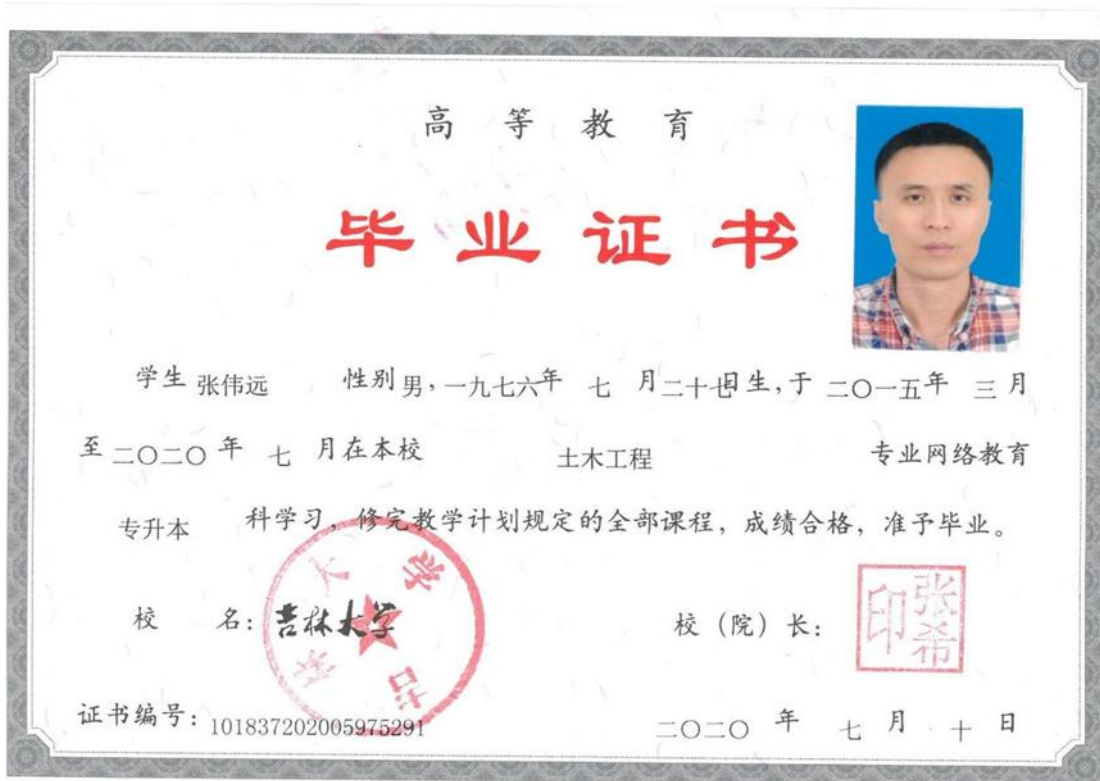 高等教育
毕业证书
学生 张伟远 性别 男，一九七六年 七 月二十七日生，于 二〇一五年 三 月
至 二〇二〇 年 七 月在本校 土木工程 专业网络教育
专升本 科学习，修完教学计划规定的全部课程，成绩合格，准予毕业。
吉林大学
校 名：吉林大学 校（院）长： 张希印
证书编号：101837202005975291 二〇二〇 年 七 月 十 日